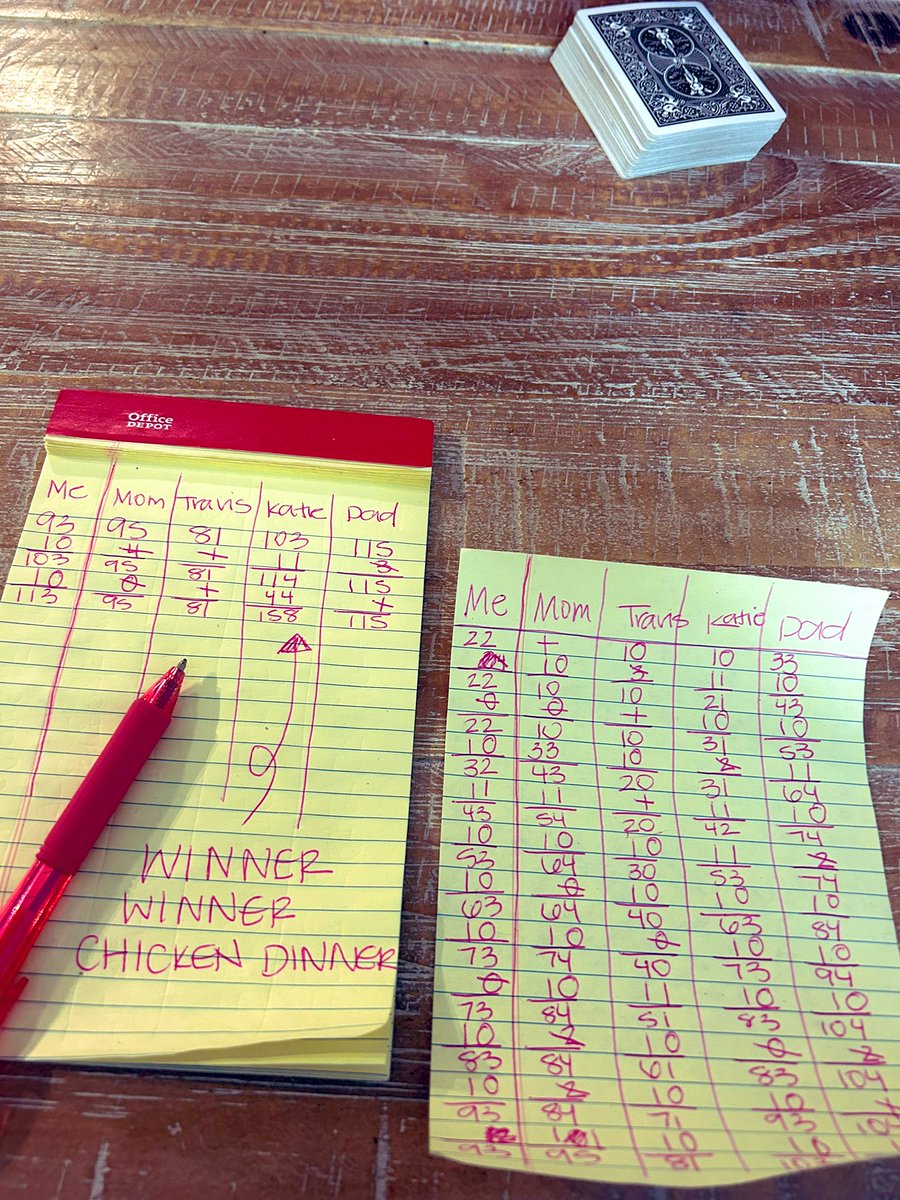 Office
DEPOT
Me Mom Travis Katie Dad
93 95 81 103 115
10 4 + 11 2
103 95 81 114 115
10 0 + 44 +
113 95 81 158 115
WINNER
WINNER
CHICKEN DINNER
Me Mom Travis Katie Dad
22 + 10 10 33
10 3 11 10
22 10 10 21 43
0 0 + 10 10
22 10 10 31 53
10 33 10 2 11
32 43 20 31 64
11 11 + 11 10
43 54 20 42 74
10 10 10 11 2
53 64 30 53 74
10 0 10 10 10
63 64 40 63 84
10 10 0 10 10
73 74 40 73 94
0 10 11 10 10
73 84 51 83 104
10 2 10 0 2
83 84 61 83 104
10 2 10 10
93 84 71 93 104
10 10
93 95 81